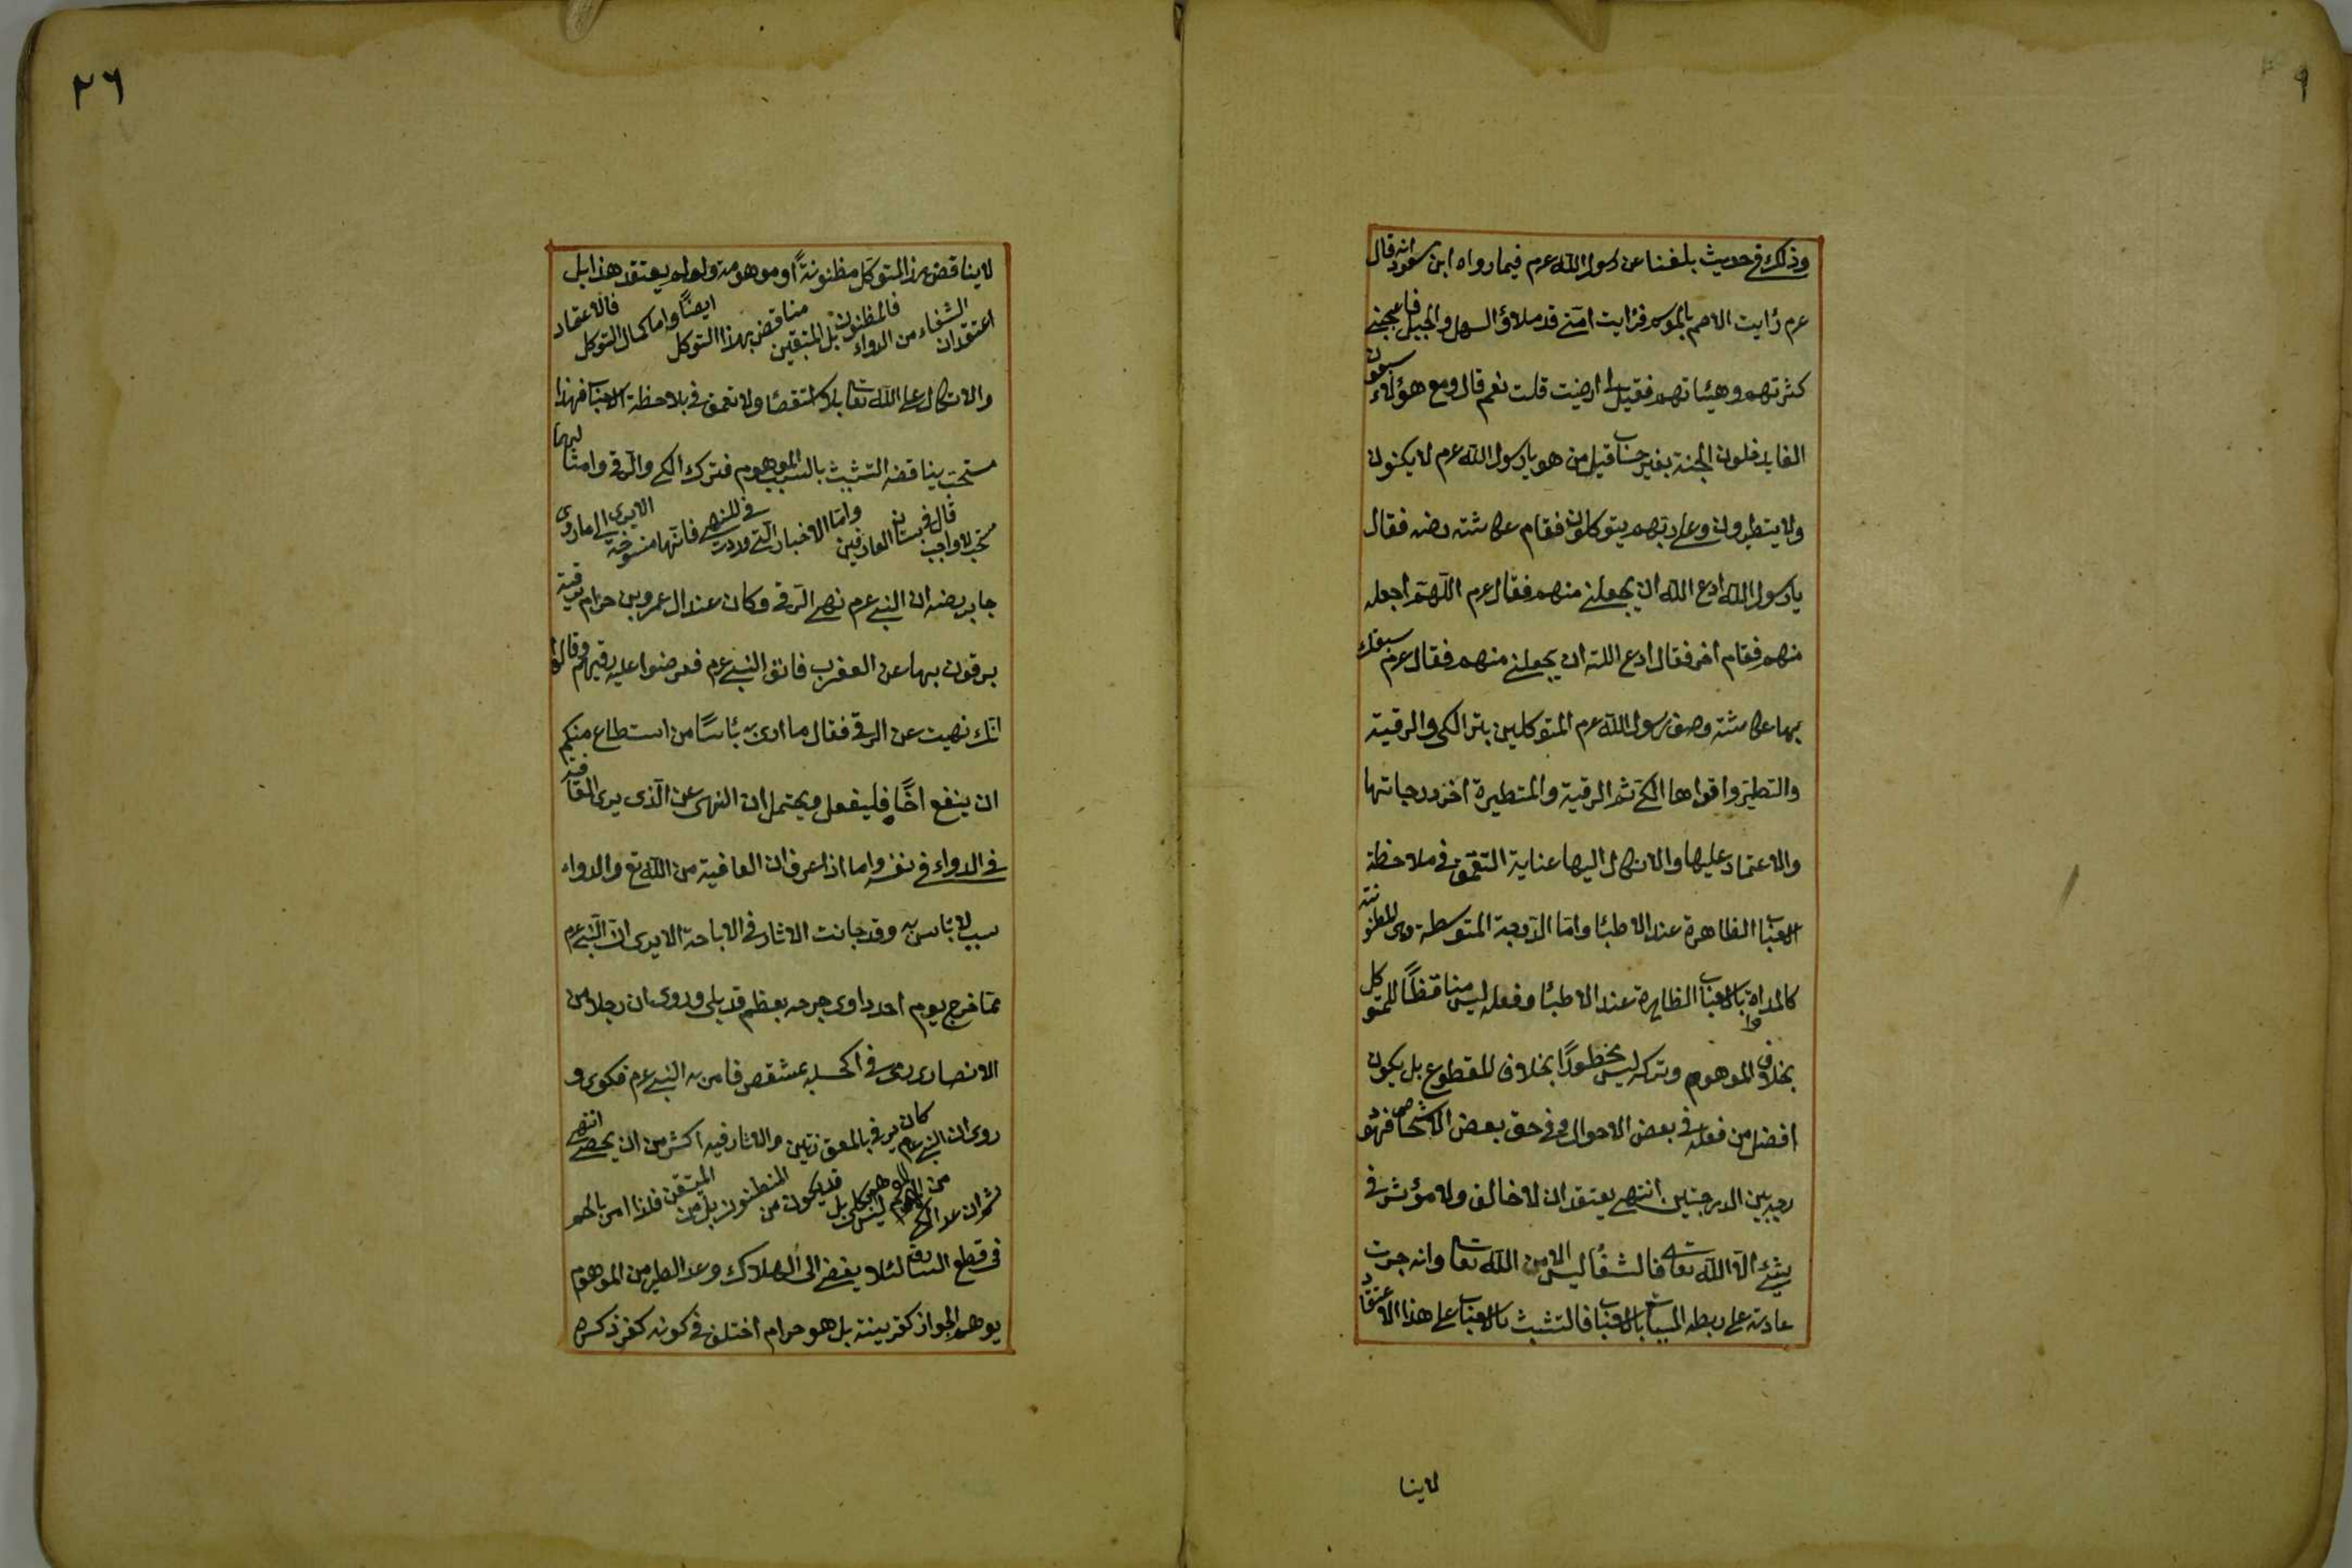 وذلك في حديث بلغنا عن رسول الله عرم فيما رواه ابن مسعود انه قال
عرم رأيت الامم بالموسم فرأيت امتى قد ملاؤ السهل والجبل فاعجبنى
كثرتهم وهيئاتهم فقيل لى ارضيت قلت نعم قال ومع هؤلاء سبعون
الفا يدخلون الجنة بغير حساب قيل من هو يا رسول الله عرم لا يكتوون
ولا يتطيرون وعلى ربهم يتوكلون فقام عكاشته رضه فقال
يا رسول الله ادع الله ان يجعلنى منهم فقال عرم اللهم اجعله
منهم فقام اخر فقال ادع الله ان يجعلنى منهم فقال عرم سبقك
بها عكاشته وصف رسول الله عرم المتوكلين بترك الكى والرقية
والتطير واقواها الكى ثم الرقية والمتطيرة اخر درجاتها
والاعتماد عليها والاتكال اليها عناية التعمق في ملاحظة
الاسباب الظاهرة عند الاطباء واما الدرجة المتوسطة وهى المظنونة
كالمداواة بالاسباب الظاهرة عند الاطباء وفعله ليس مناقضاً للتوكل
بخلاف الموهوم وتركه ليس محظوراً بخلاف المقطوع بل يكون
افضل من فعله في بعض الاحوال وفي حق بعض الاشخاص فهو
درجة بين الدرجتين انتهى يعتقد ان لا خالف ولا مؤثر في
شئ الا الله تعالى فالشفاء ليس الا من الله تعالى وانه جرت
عادته على ربطه المسببات بالاسباب فالتشبث بالاسباب على هذا الاعتقاد
لاينا
٢٦
لا يناقض هذا المتوكل مظنونةً او موهومة ولو لم يعتقد هذا بل
اعتقد ان الشفاء من الدواء فالمظنون بل المتيقن مناقض بهذا التوكل ايضاً واما كمال التوكل فالاعتماد
والاتكال على الله تعالى بلا استقصاء ولا تعمق في ملاحظة الاسباب فهذا
مستحب يناقضه التشبث بالسبب الموهوم فترك الكى والرقى وامثالهما
مستحب لا واجب قال في بستان العارفين واما الاخبار التى وردت في النهى فانها منسوخة الا يرى الى ما روى
جابر رضه ان النبى عرم نهى الرقى وكان عند ال عمرو بن حزام رقية
يرقون بها عن العقرب فاتوا النبى عرم فعرضوا عليه رقيتهم وقالوا
انك نهيت عن الرقى فقال ما ارى به بأساً من استطاع منكم
ان ينفع اخاه فليفعل ويحتمل ان النهى عن الذى يرى العافية
في الدواء في نفسه واما اذا عرف ان العافية من الله تع والدواء
سبب لا بأس به وقد جاءت الاثار في الاباحة الا يرى ان النبى عرم
لما خرج يوم احد داوى جرحه بعظم قد بلى وروى ان رجلا من
الانصار رمى في اكحله بمشقص فامر به النبى عرم فكوى و
روى ان النبى عرم كان يرقى بالمعوذتين والاثار فيه اكثر من ان يحصى انتهى
ثم ان عد الكى من الموهوم ليس بكلى بل قد يكون من المظنون بل من المتيقن فلذا امر بالحسم
في قطع السارق لئلا يفضى الى الهلاك وعد الطير من الموهوم
يوهم الجواز كقرينته بل هو حرام اختلف في كونه كفر ذكره